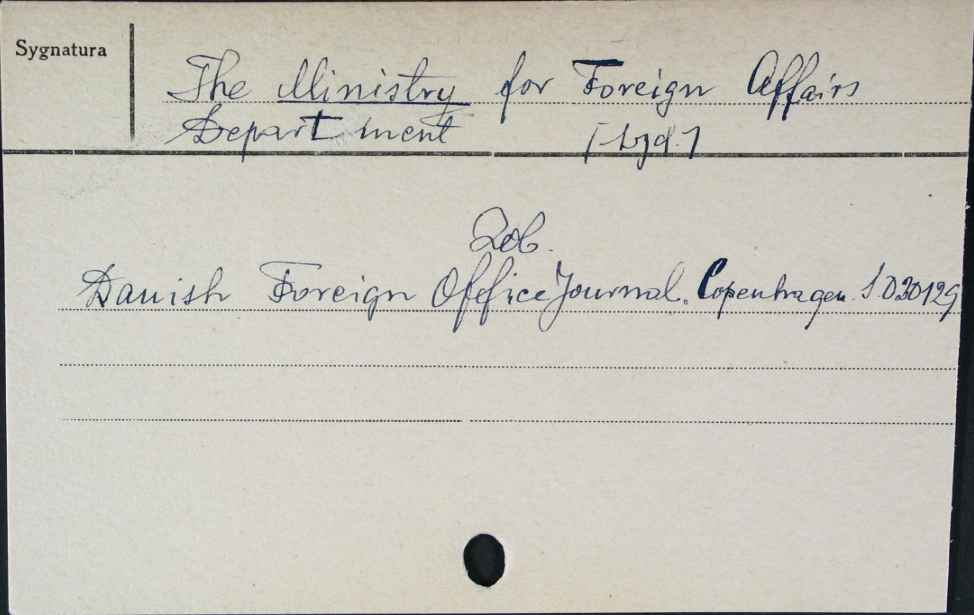 Sygnatura
The Ministry for Foreign Affairs
Department [-wyd.]
Zob.
Danish Foreign Offfice Journal. Copenhagen. S.D30129